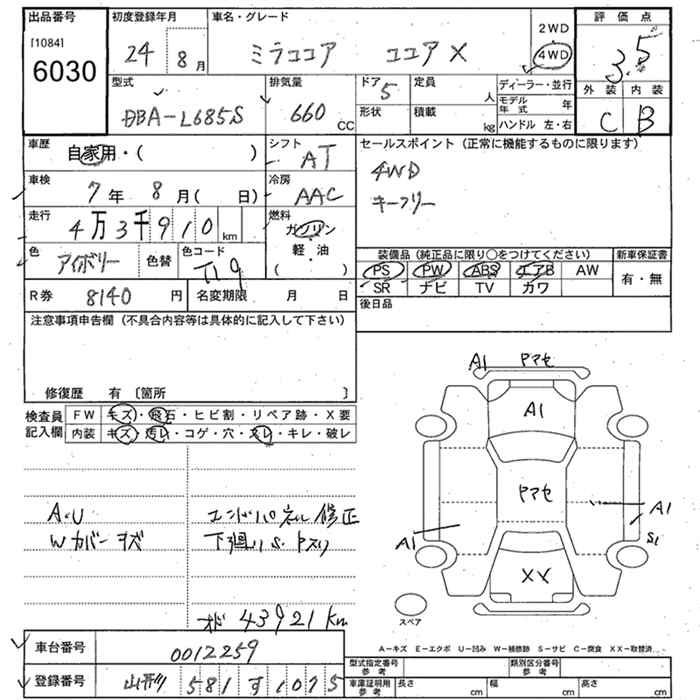 出品番号
[1084]
6030
初度登録年月
24 8月
車名・グレード
ミラココア ココアX
2WD
4WD
評価点
3.5
外装 内装
C B
型式
DBA-L685S
排気量
660 CC
ドア 5
形状
定員 人
積載 kg
ディーラー・並行
モデル年式 年
ハンドル 左・右
車歴
自家用・( )
シフト
AT
セールスポイント (正常に機能するものに限ります)
4WD
キーフリー
車検
7年 8月( 日)
冷房
AAC
走行
4万3千910 km
燃料
ガソリン
軽・油
( )
色
アイボリー 色替
色コード
T19
装備品 (純正品に限り○をつけてください)
新車保証書
PS PW ABS エアB AW
有・無
SR ナビ TV カワ
後日品
R券 8140 円
名変期限 月 日
注意事項申告欄 (不具合内容等は具体的に記入して下さい)
修復歴 有 〔箇所 〕
検査員記入欄
FW キズ・飛石・ヒビ割・リペア跡・X要
内装 キズ・汚レ・コゲ・穴・スレ・キレ・破レ
A1 ヤマセ
A1
ヤマセ
A1
A1
S1
XX
スペア
A・U
Wカバーキズ
エンドパネル修正
下廻りS・Pスリ
オド 43921km
車台番号
0012259
登録番号
山形 581 す 1075
A−キズ E−エクボ U−凹み W−補修跡 S−サビ C−腐食 XX−取替済
型式指定番号 参考
類別区分番号 参考
車庫証明用 参考
長さ cm
幅 cm
高さ cm